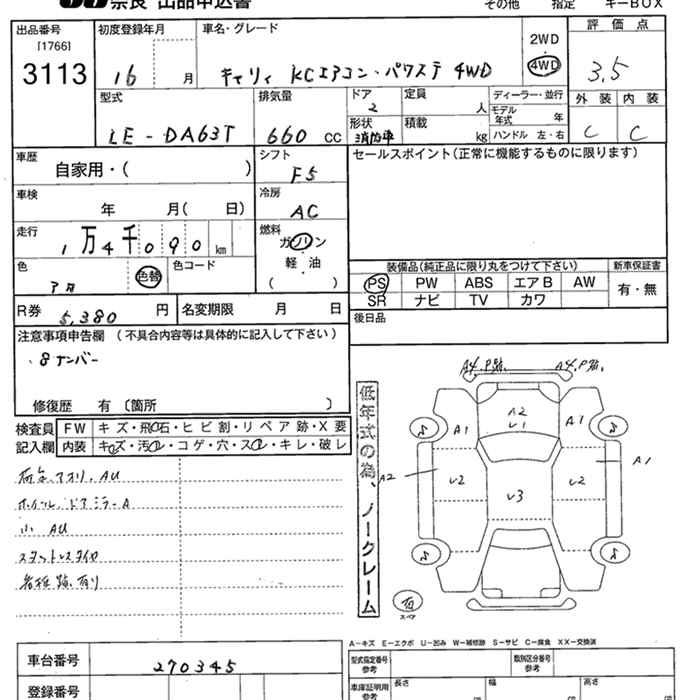 奈良 出品申込書
その他 指定 キーBOX
出品番号
[1766]
3113
初度登録年月
16 月
車名・グレード
キャリィ KCエアコン・パワステ 4WD
2WD
4WD
評価点
3.5
型式
LE-DA63T
排気量
660 cc
ドア
2
形状
消防車
定員
人
積載
kg
ディーラー・並行
モデル年式 年
ハンドル 左・右
外装 内装
C C
車歴
自家用・( )
シフト
F5
セールスポイント(正常に機能するものに限ります)
車検
年 月( 日)
冷房
AC
走行
1万4千090 km
燃料
ガソリン
軽油
( )
色
アカ
色替
色コード
装備品(純正品に限り丸をつけて下さい)
PS PW ABS エアB AW
SR ナビ TV カワ
新車保証書
有・無
R券
5,380 円
名変期限 月 日
後日品
注意事項申告欄 (不具合内容等は具体的に記入して下さい)
・8ナンバー
修復歴 有〔箇所 〕
検査員
記入欄
FW キズ・飛石・ヒビ割・リペア跡・X要
内装 キズ・汚レ・コゲ・穴・スレ・キレ・破レ
荷台、アオリ、AU
ホイール、ドアミラーA
小 AU
スタットレスタイヤ
各種跡有り
低年式の為、ノークレーム
A4.P跡. A4.P跡.
A2
U1
A1 A1
A2 U2 U2 A1
U3
S S
S S
A-キズ E-エクボ U-凹み W-補修跡 S-サビ C-腐食 XX-交換済
車台番号
270345
登録番号
型式指定番号
参考
類別区分番号
参考
車庫証明用
参考
長さ
幅
高さ